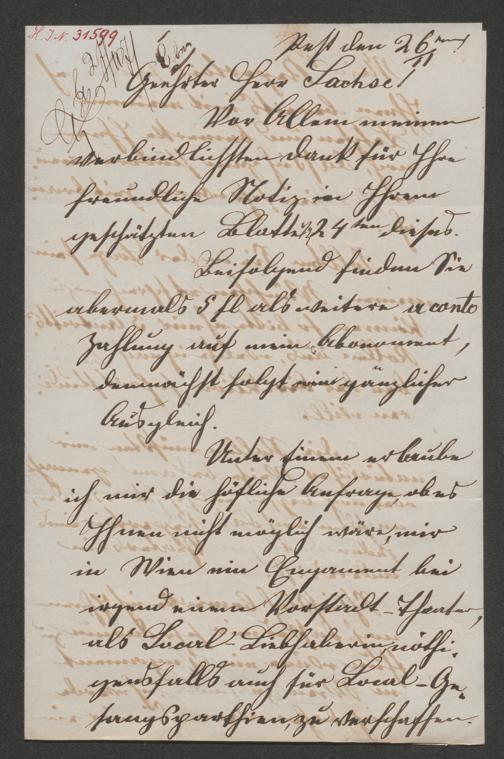 H.I.N. 31599
Pest den 26/II
Geehrter Herr Sachse!
Vor Allem meinen
verbindlichsten Dank für Ihre
freundliche Notiz in Ihrem
geschätzten Blatte 24ten dieses.
Beifolgend finden Sie
abermals 5 fl als weitere a conto
Zahlung auf mein Abonoment,
demnächst folgt ein gänzlicher
Ausgleich.
Unter Einem erlaube
ich mir die höfliche Anfrage, ob es
Ihnen nicht möglich wäre, mir
in Wien ein Engament bei
irgend einem Vorstadt-Theater,
als Local-Liebhaberin nöthi-
gensfalls auch für Local-Ge-
sangsparthien, zu verschaffen.